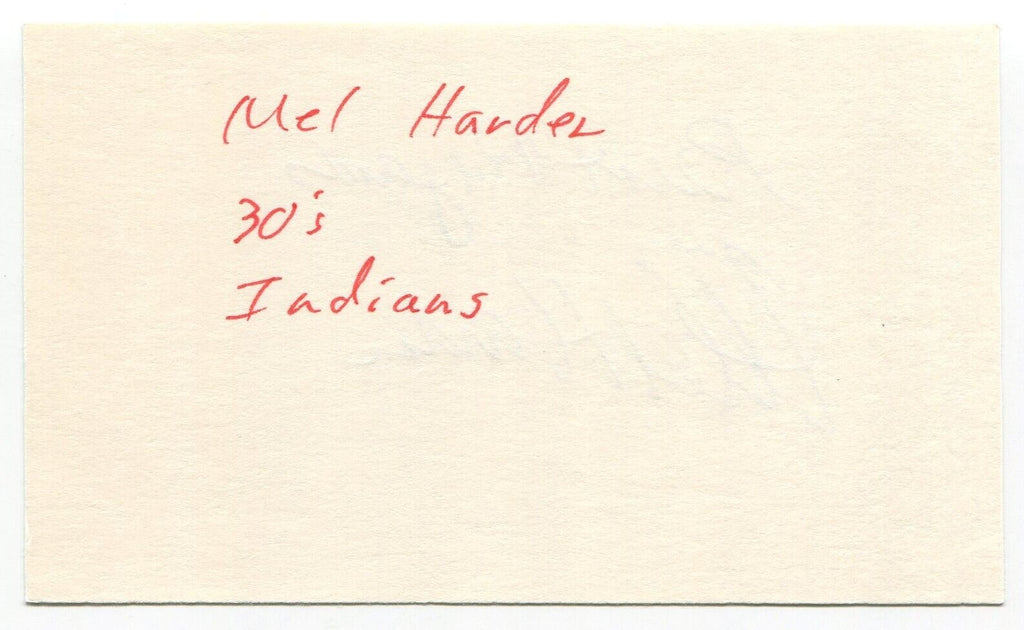 Mel Harder
30's
Indians